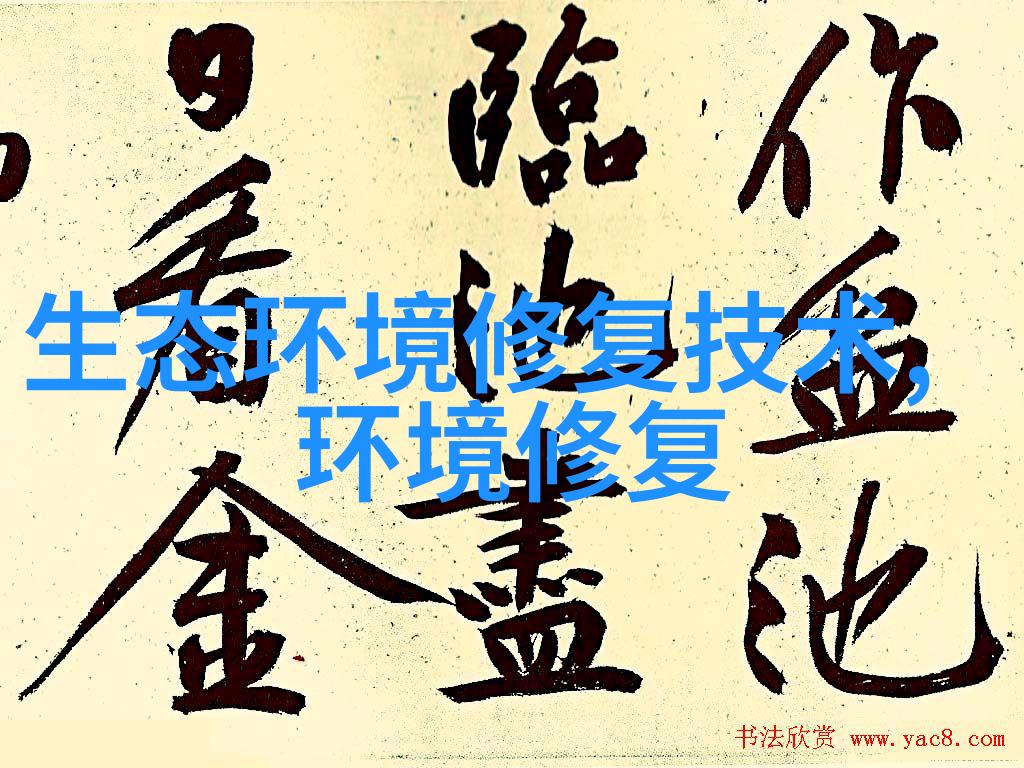 作盆池
臨池盡
日看金
生态环境修复技术,
环境修复
书法欣赏 www.yac8.com